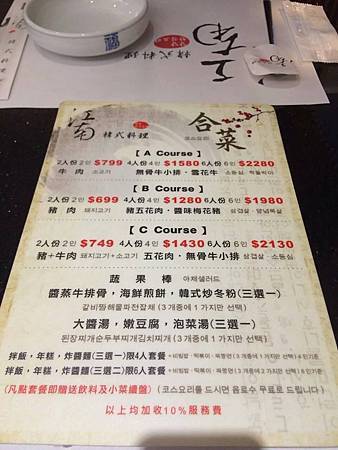 韓式料理
江南 韓式料理 合菜
코스요리
[ A Course ]
2人份 2인 $799 4人份 4인 $1580 6人份 6인 $2280
牛肉 소고기 無骨牛小排·雪花牛
[ B Course ]
2人份 2인 $699 4人份 4인 $1280 6人份 6인 $1980
豬肉 돼지고기 豬五花肉·醬味梅花豬 삼겹살·양념목살
[ C Course ]
2人份 2인 $749 4人份 4인 $1430 6人份 6인 $2130
豬+牛肉 돼지고기+소고기 五花肉·無骨牛小排 삼겹살·소등심
蔬果棒 야채샐러드
醬蒸牛排骨,海鮮煎餅,韓式炒冬粉(三選一)
갈비찜해물파전잡채 (3개중에 1가지만 선택)
大醬湯,嫩豆腐,泡菜湯(三選一)
된장찌개순두부찌개김치찌개 (3개중에 1가지만 선택)
拌飯,年糕,炸醬麵(三選一)限4人套餐
拌飯,年糕,炸醬麵(三選二)限6人套餐
(凡點套餐即贈送飲料及小菜續盤) (코스요리를 드시면 음료수 무료로 드립니다)
以上均加收10%服務費